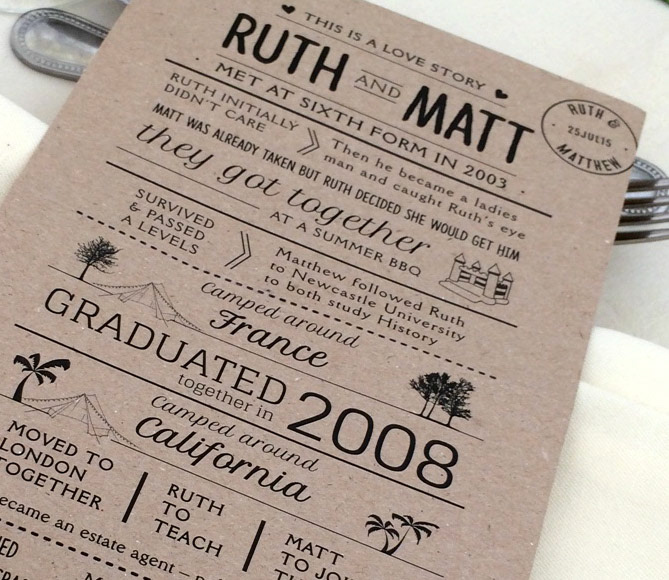 THIS IS A LOVE STORY
RUTH AND MATT
MET AT SIXTH FORM IN 2003
RUTH &
25JUL15
MATTHEW
RUTH INITIALLY
DIDN'T CARE
Then he became a ladies
man and caught Ruth's eye
MATT WAS ALREADY TAKEN BUT RUTH DECIDED SHE WOULD GET HIM
they got together
AT A SUMMER BBQ
SURVIVED
& PASSED
A LEVELS
Matthew followed Ruth
to Newcastle University
to both study History
Camped around
France
GRADUATED
together in
2008
Camped around
California
MOVED TO
LONDON
TOGETHER
RUTH
TO
TEACH
MATT
TO
became an estate agent –